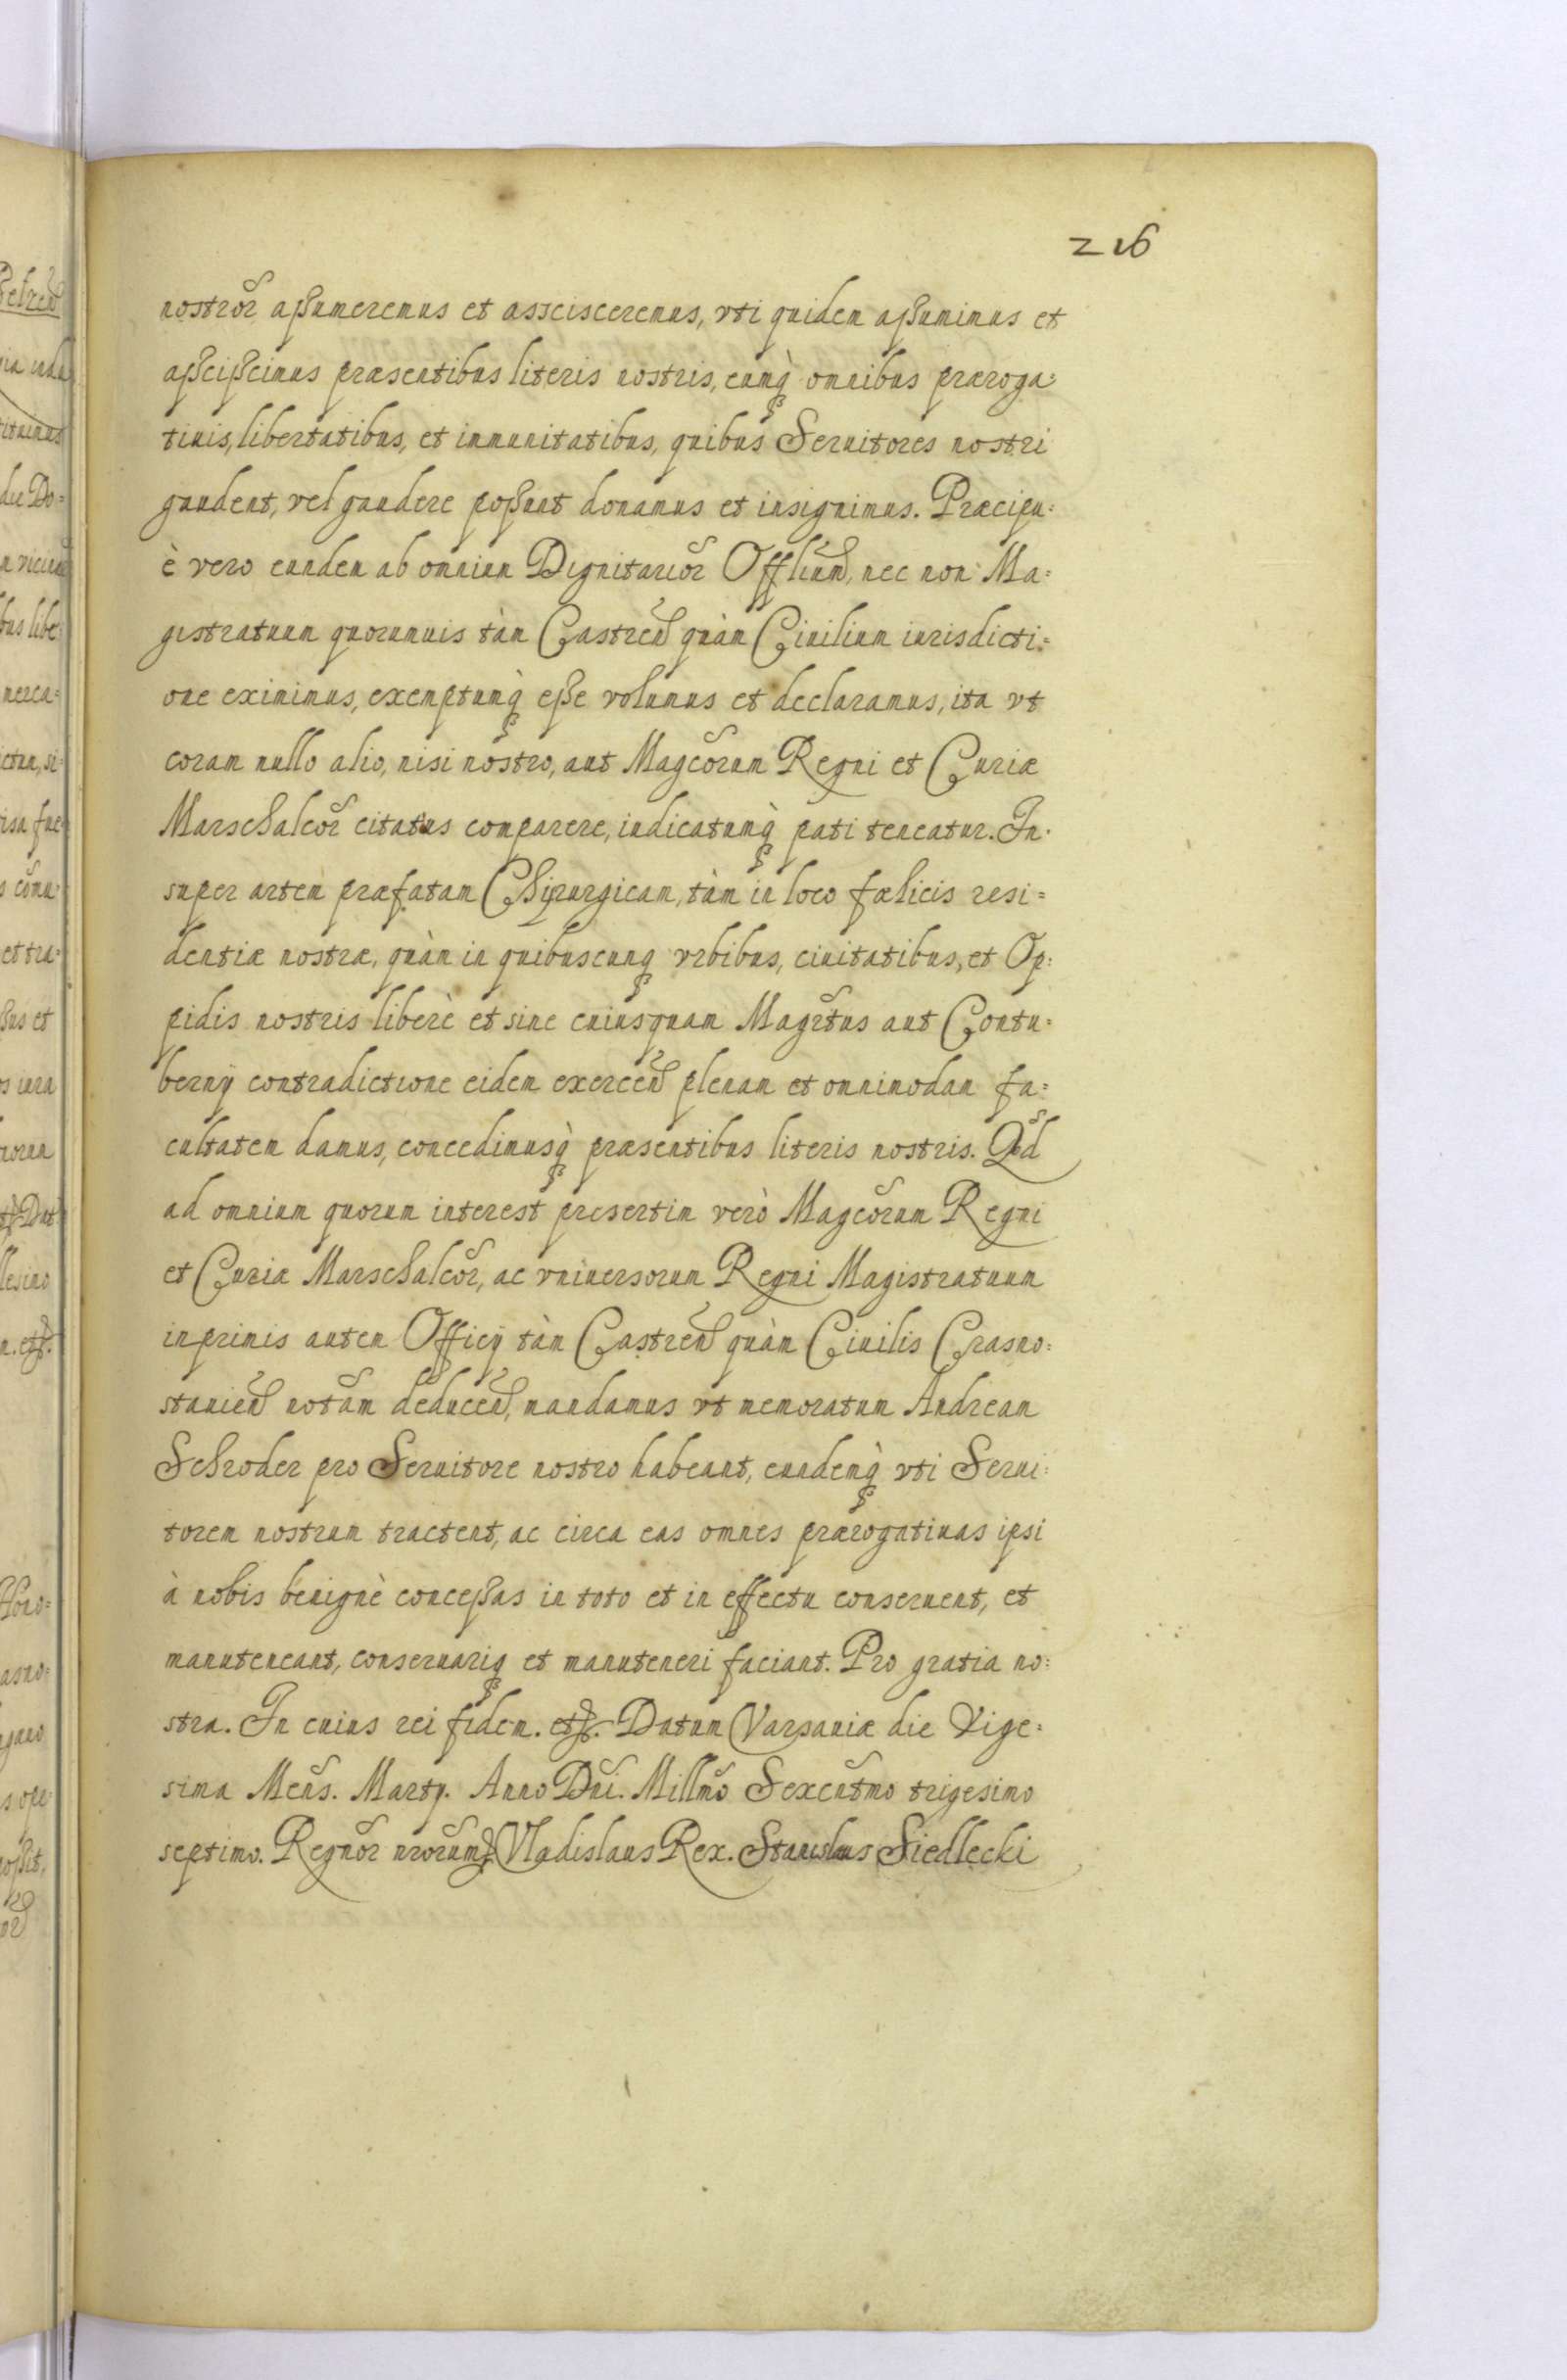 216
nostror̃ aßumeremus et asscisceremus, vti quidem aßumimus et
aßcißcimus præsentibus literis nostris, eumq̀ omnibus præroga=
tiuis, libertatibus, et immunitatibus, quibus Seruitores nostri
gaudent, vel gaudere poßunt donamus et insignimus. Præcipu=
è vero eundem ab omnium Dignitarior̃ Offlium, nec non Ma=
gistratuum quorumuis tàm Castren̄ quàm Ciuilium iurisdicti=
one eximimus, exemptumq̀ eße volumus et declaramus, ita vt
coram nullo alio, nisi nostro, aut Magcõrum Regni et Curiæ
Marschalcor̃ citatus comparere, iudicatumq̀ pati teneatur. In=
super artem præfatam Chirurgicam, tàm in loco fælicis resi=
dentiæ nostræ, quàm in quibuscunq vrbibus, ciuitatibus, et Op=
pidis nostris liberè et sine cuiusquam Magr̃tus aut Contu=
bernij contradictione eidem exercen̄ plenam et omnimodam fa=
cultatem damus, concedimusq̀ præsentibus literis nostris. Qõd
ad omnium quorum interest presertim verò Magcõrum Regni
et Curiæ Marschalcor̃, ac vniuersorum Regni Magistratuum
inprimis autem Officij tàm Castren̄ quàm Ciuilis Crasno=
stauien̄ notãm deducen̄, mandamus vt memoratum Andream
Schroder pro Seruitore nostro habeant, eundemq̀ vti Serui=
torem nostrum tractent, ac circa eas omnes prærogatiuas ipsi
à nobis benignè conceßas in toto et in effectu conseruent, et
manuteneant, conseruariq et manuteneri faciant. Pro gratia no=
stra. In cuius rei fidem. etc. Datum Varsauiæ die Vige=
sima Men̄s. Martij. Anno Dn̄i. Millmõ Sexcen̄tmo trigesimo
septimo. Regnor̃ nrõrum etc. Vladislaus Rex. Stanislaus Siedlecki